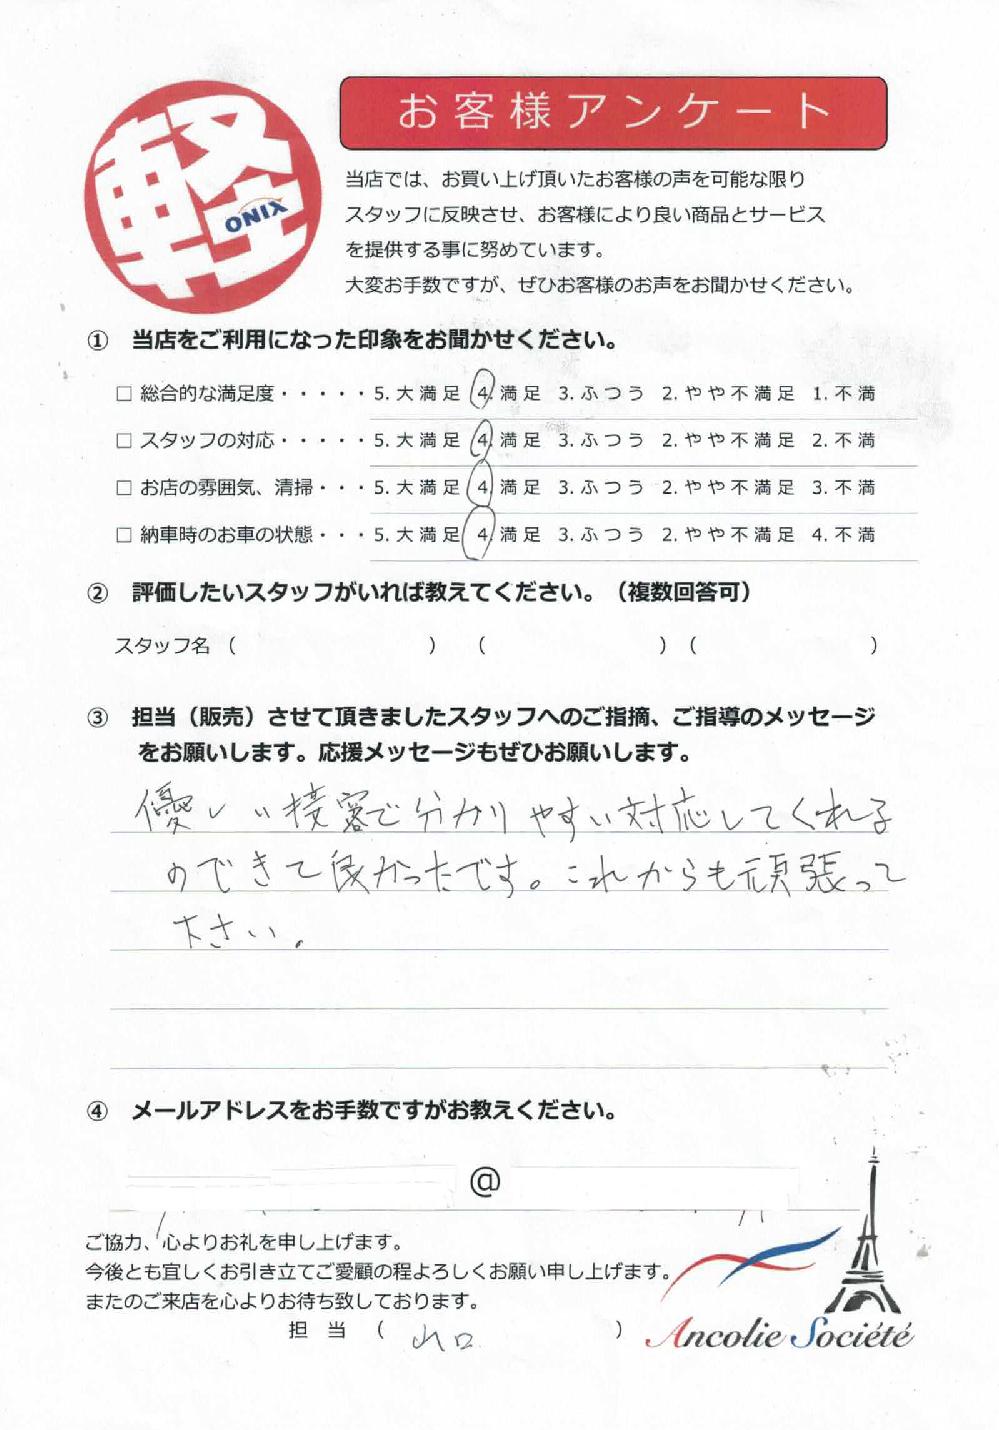 お客様アンケート
軽
ONIX
当店では、お買い上げ頂いたお客様の声を可能な限り
スタッフに反映させ、お客様により良い商品とサービス
を提供する事に努めています。
大変お手数ですが、ぜひお客様のお声をお聞かせください。
① 当店をご利用になった印象をお聞かせください。
□ 総合的な満足度・・・・・5. 大満足 4. 満足 3. ふつう 2. やや不満足 1. 不満
□ スタッフの対応・・・・・5. 大満足 4. 満足 3. ふつう 2. やや不満足 2. 不満
□ お店の雰囲気、清掃・・・5. 大満足 4. 満足 3. ふつう 2. やや不満足 3. 不満
□ 納車時のお車の状態・・・5. 大満足 4. 満足 3. ふつう 2. やや不満足 4. 不満
② 評価したいスタッフがいれば教えてください。（複数回答可）
スタッフ名（ ） （ ）（ ）
③ 担当（販売）させて頂きましたスタッフへのご指摘、ご指導のメッセージ
をお願いします。応援メッセージもぜひお願いします。
優しい接客で分かりやすい対応してくれる
のできて良かったです。これからも頑張って
下さい。
④ メールアドレスをお手数ですがお教えください。
@
ご協力、心よりお礼を申し上げます。
今後とも宜しくお引き立てご愛顧の程よろしくお願い申し上げます。
またのご来店を心よりお待ち致しております。
担 当 （ 山口 ）
Ancolie Société